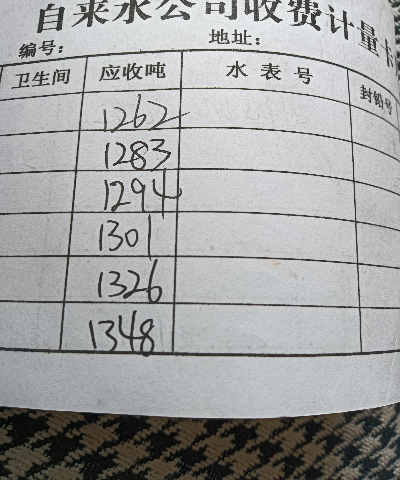 自来水公司收费计量卡
编号： 地址：
卫生间 应收吨 水表号 封铅号
1262
1283
1294
1301
1326
1348